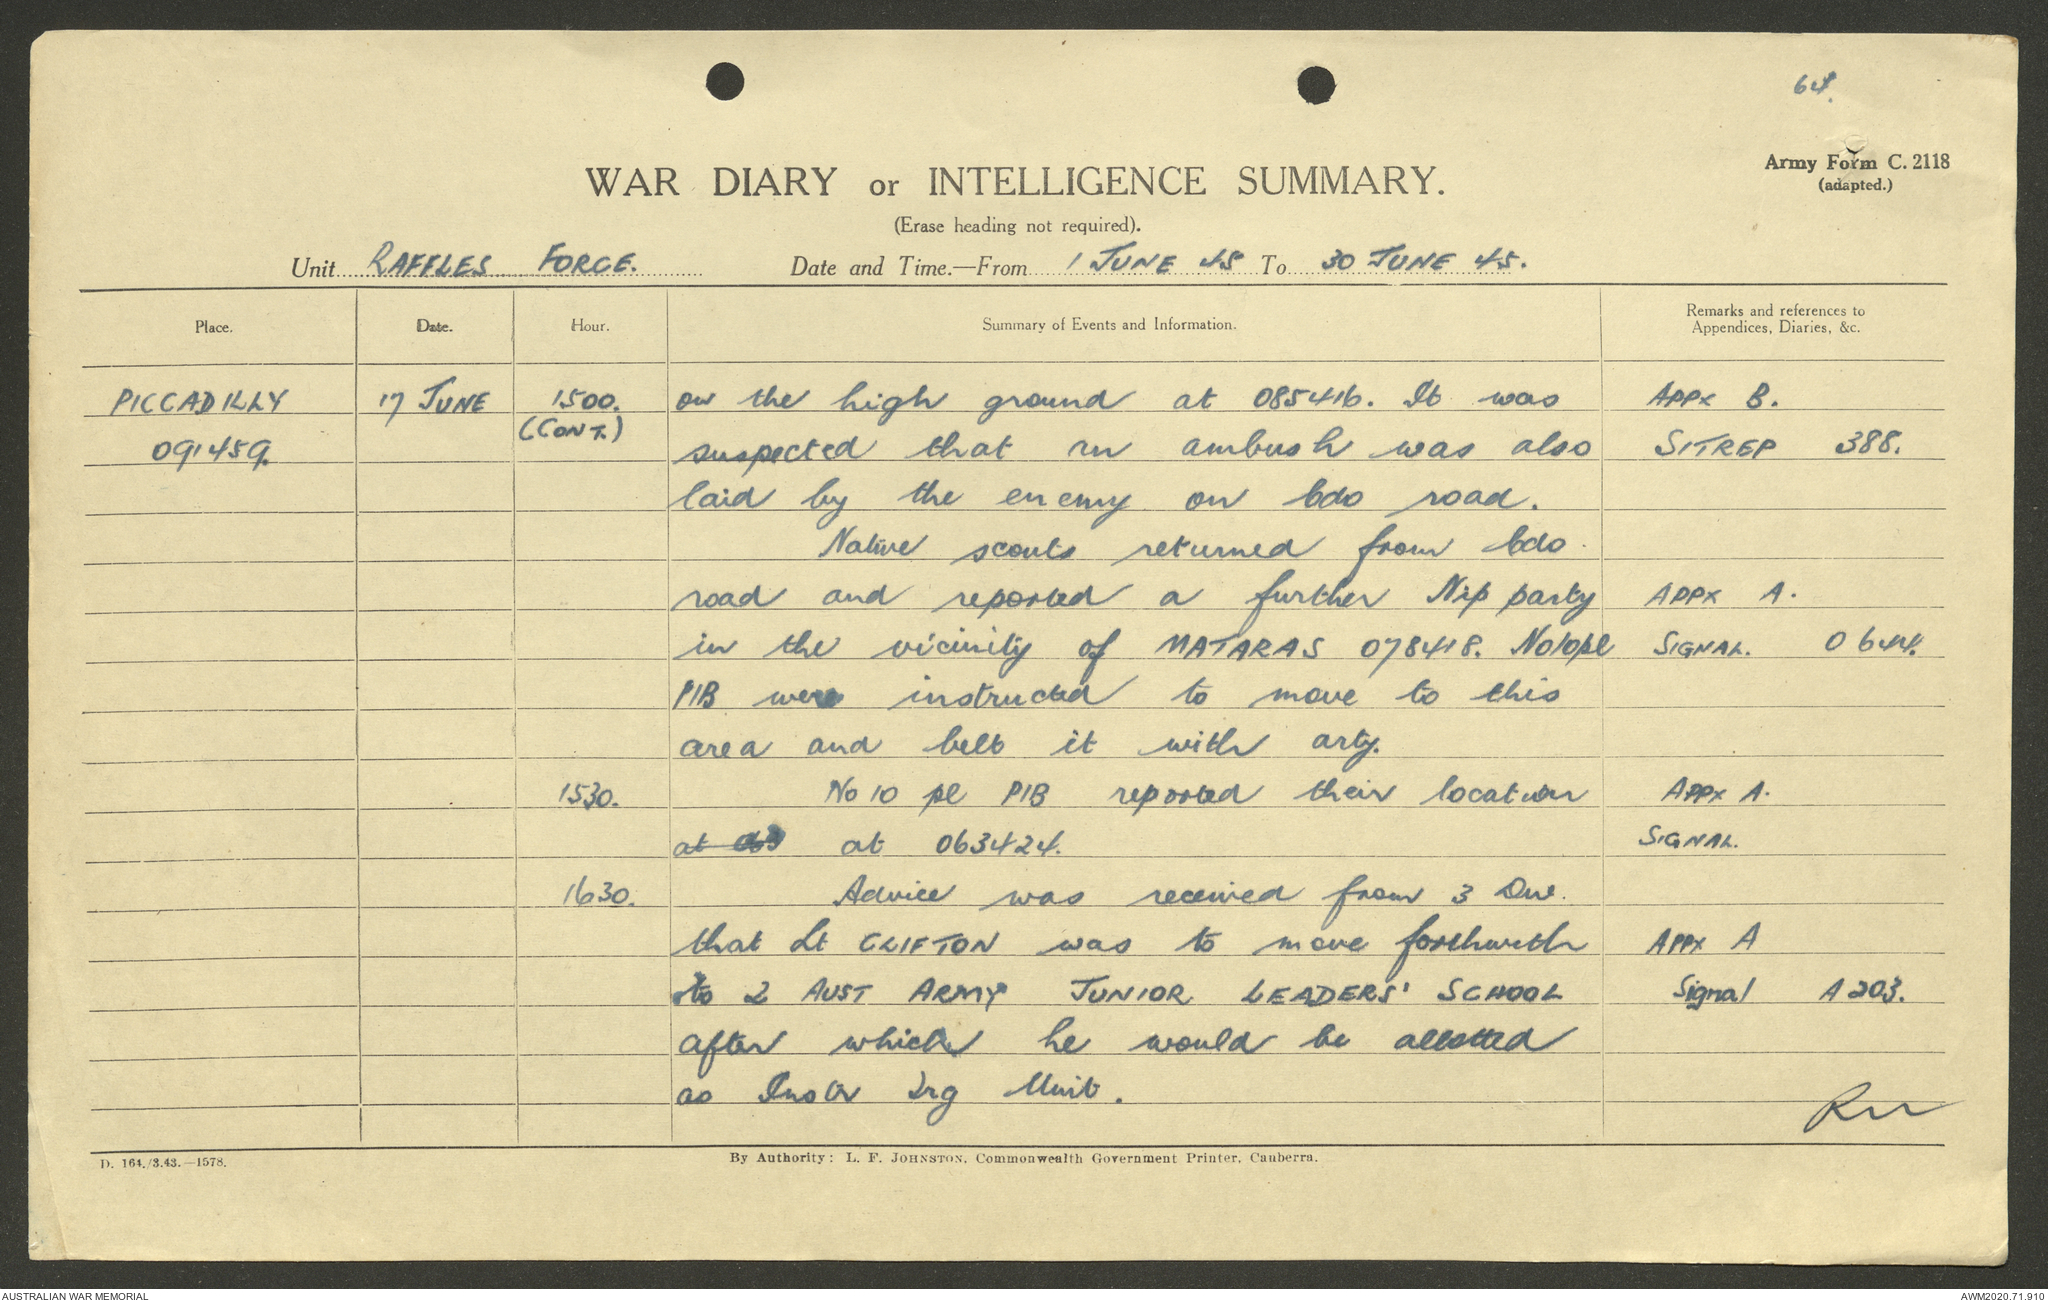 64.
Army Form C. 2118
(adapted.)
WAR DIARY or INTELLIGENCE SUMMARY.
(Erase heading not required).
Unit RAFFLES FORCE. Date and Time.—From 1 JUNE 45 To 30 JUNE 45.
Place. Date. Hour. Summary of Events and Information. Remarks and references to Appendices, Diaries, &c.
PICCADILLY 17 JUNE 1500. on the high ground at 085416. It was APPX B.
091459. (CONT.) suspected that an ambush was also SITREP 388.
laid by the enemy on bdo road.
Native scouts returned from bdo
road and reported a further Nip party APPX A.
in the vicinity of MATARAS 078418. No10pl SIGNAL. O644.
PIB were instructed to move to this
area and belt it with arty.
1530. No 10 pl PIB reported their location APPX A.
at 063 at 063424. SIGNAL.
1630. Advice was received from 3 Div.
that Lt CLIFTON was to move forthwith APPX A
to 2 AUST ARMY JUNIOR LEADERS' SCHOOL Signal A203.
after which he would be allotted
as Instr Trg Unit.
D. 164./3.43.—1578. By Authority: L. F. JOHNSTON, Commonwealth Government Printer, Canberra.
AUSTRALIAN WAR MEMORIAL AWM2020.71.910